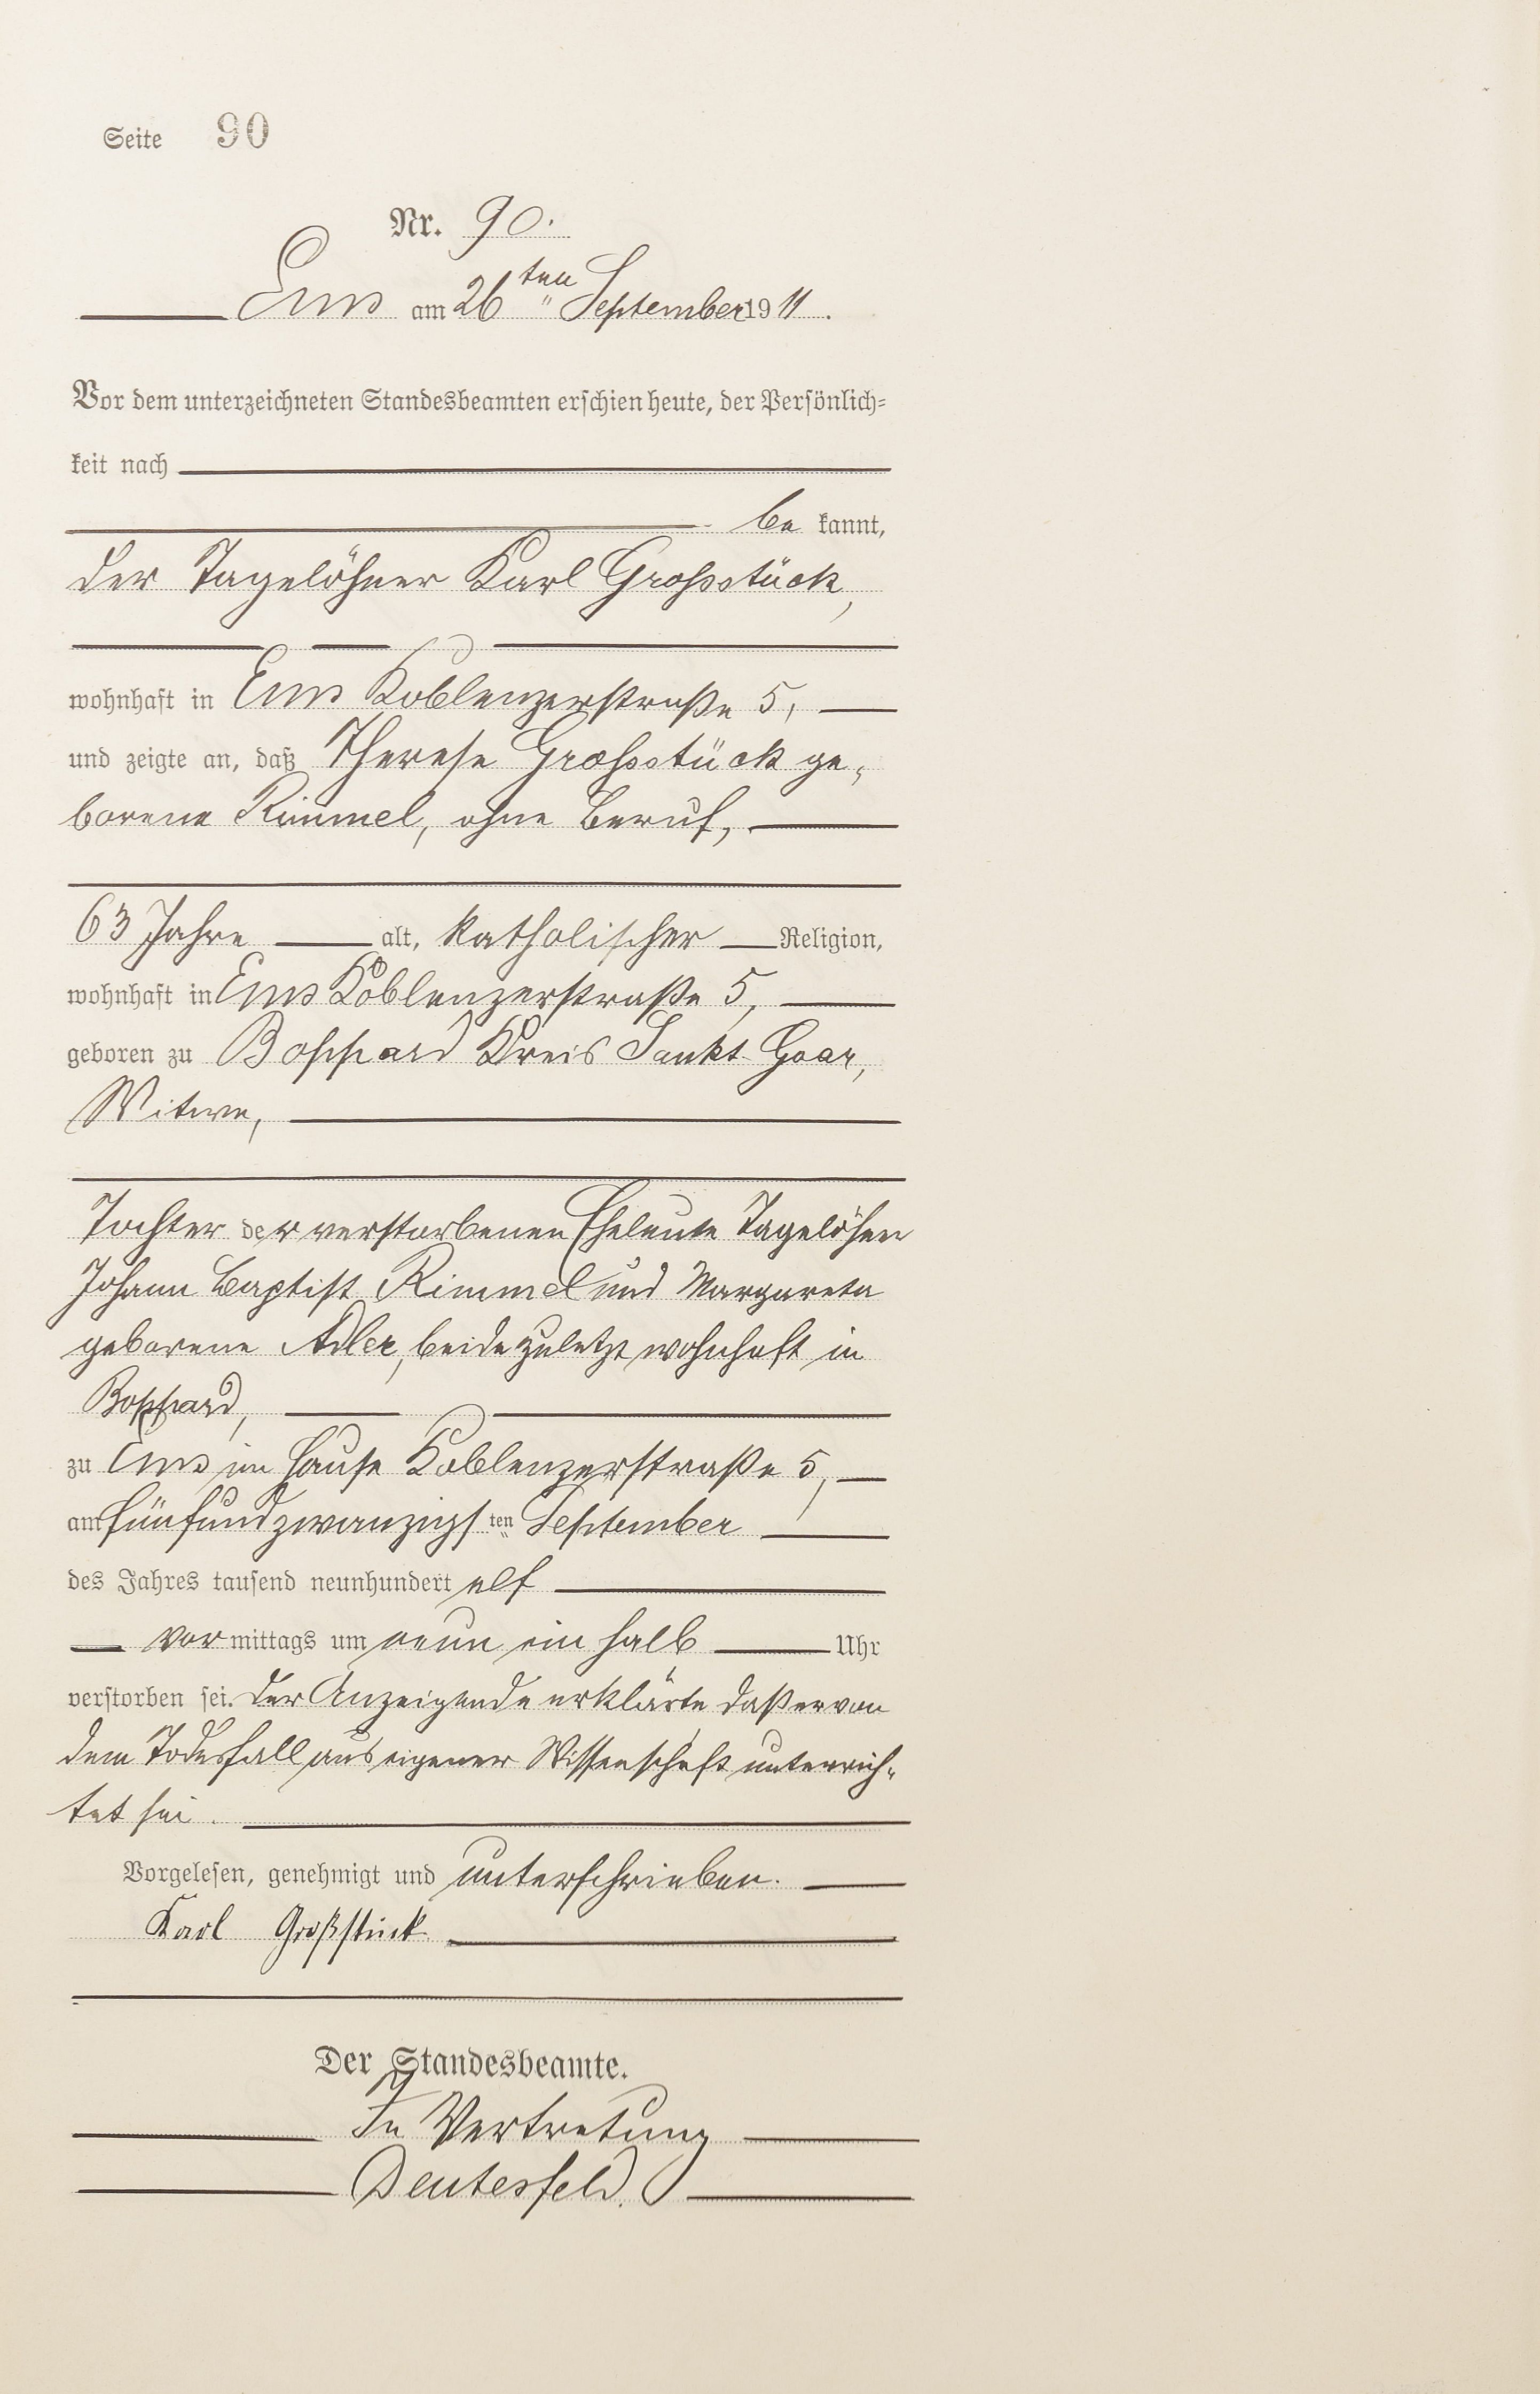 Seite 90
Nr. 90.
Ems am 26ten September 1911.
Vor dem unterzeichneten Standesbeamten erschien heute, der Persönlich=
keit nach
be kannt,
der Tagelöhner Karl Grossstück,
wohnhaft in Ems Koblenzerstraße 5,
und zeigte an, daß Therese Grossstück ge-
borene Rimmel, ohne Beruf,
63 Jahre alt, katholischer Religion,
wohnhaft in Ems Koblenzerstraße 5,
geboren zu Boppard Kreis Sankt Goar,
Witwe,
Tochter der verstorbenen Eheleute Tagelöhner
Johann Baptist Rimmel und Margareta
geborene Adler, beide zuletzt wohnhaft in
Boppard,
zu Ems im Hause Koblenzerstraße 5,
am fünfundzwanzigsten September
des Jahres tausend neunhundert elf
vormittags um neun ein halb Uhr
verstorben sei. Der Anzeigende erklärte daß er von
dem Todesfall aus eigener Wissenschaft unterrich-
tet sei.
Vorgelesen, genehmigt und unterschrieben.
Karl Großstück
Der Standesbeamte.
In Vertretung
Deutesfeld.